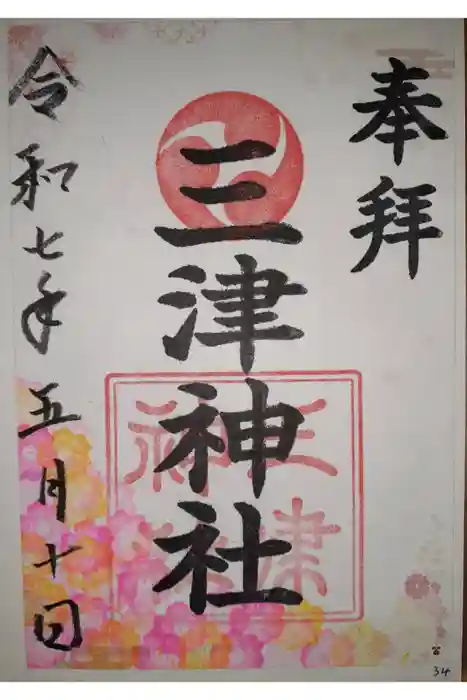 奉拝
三津神社
三津神社
令和七年五月十日
34